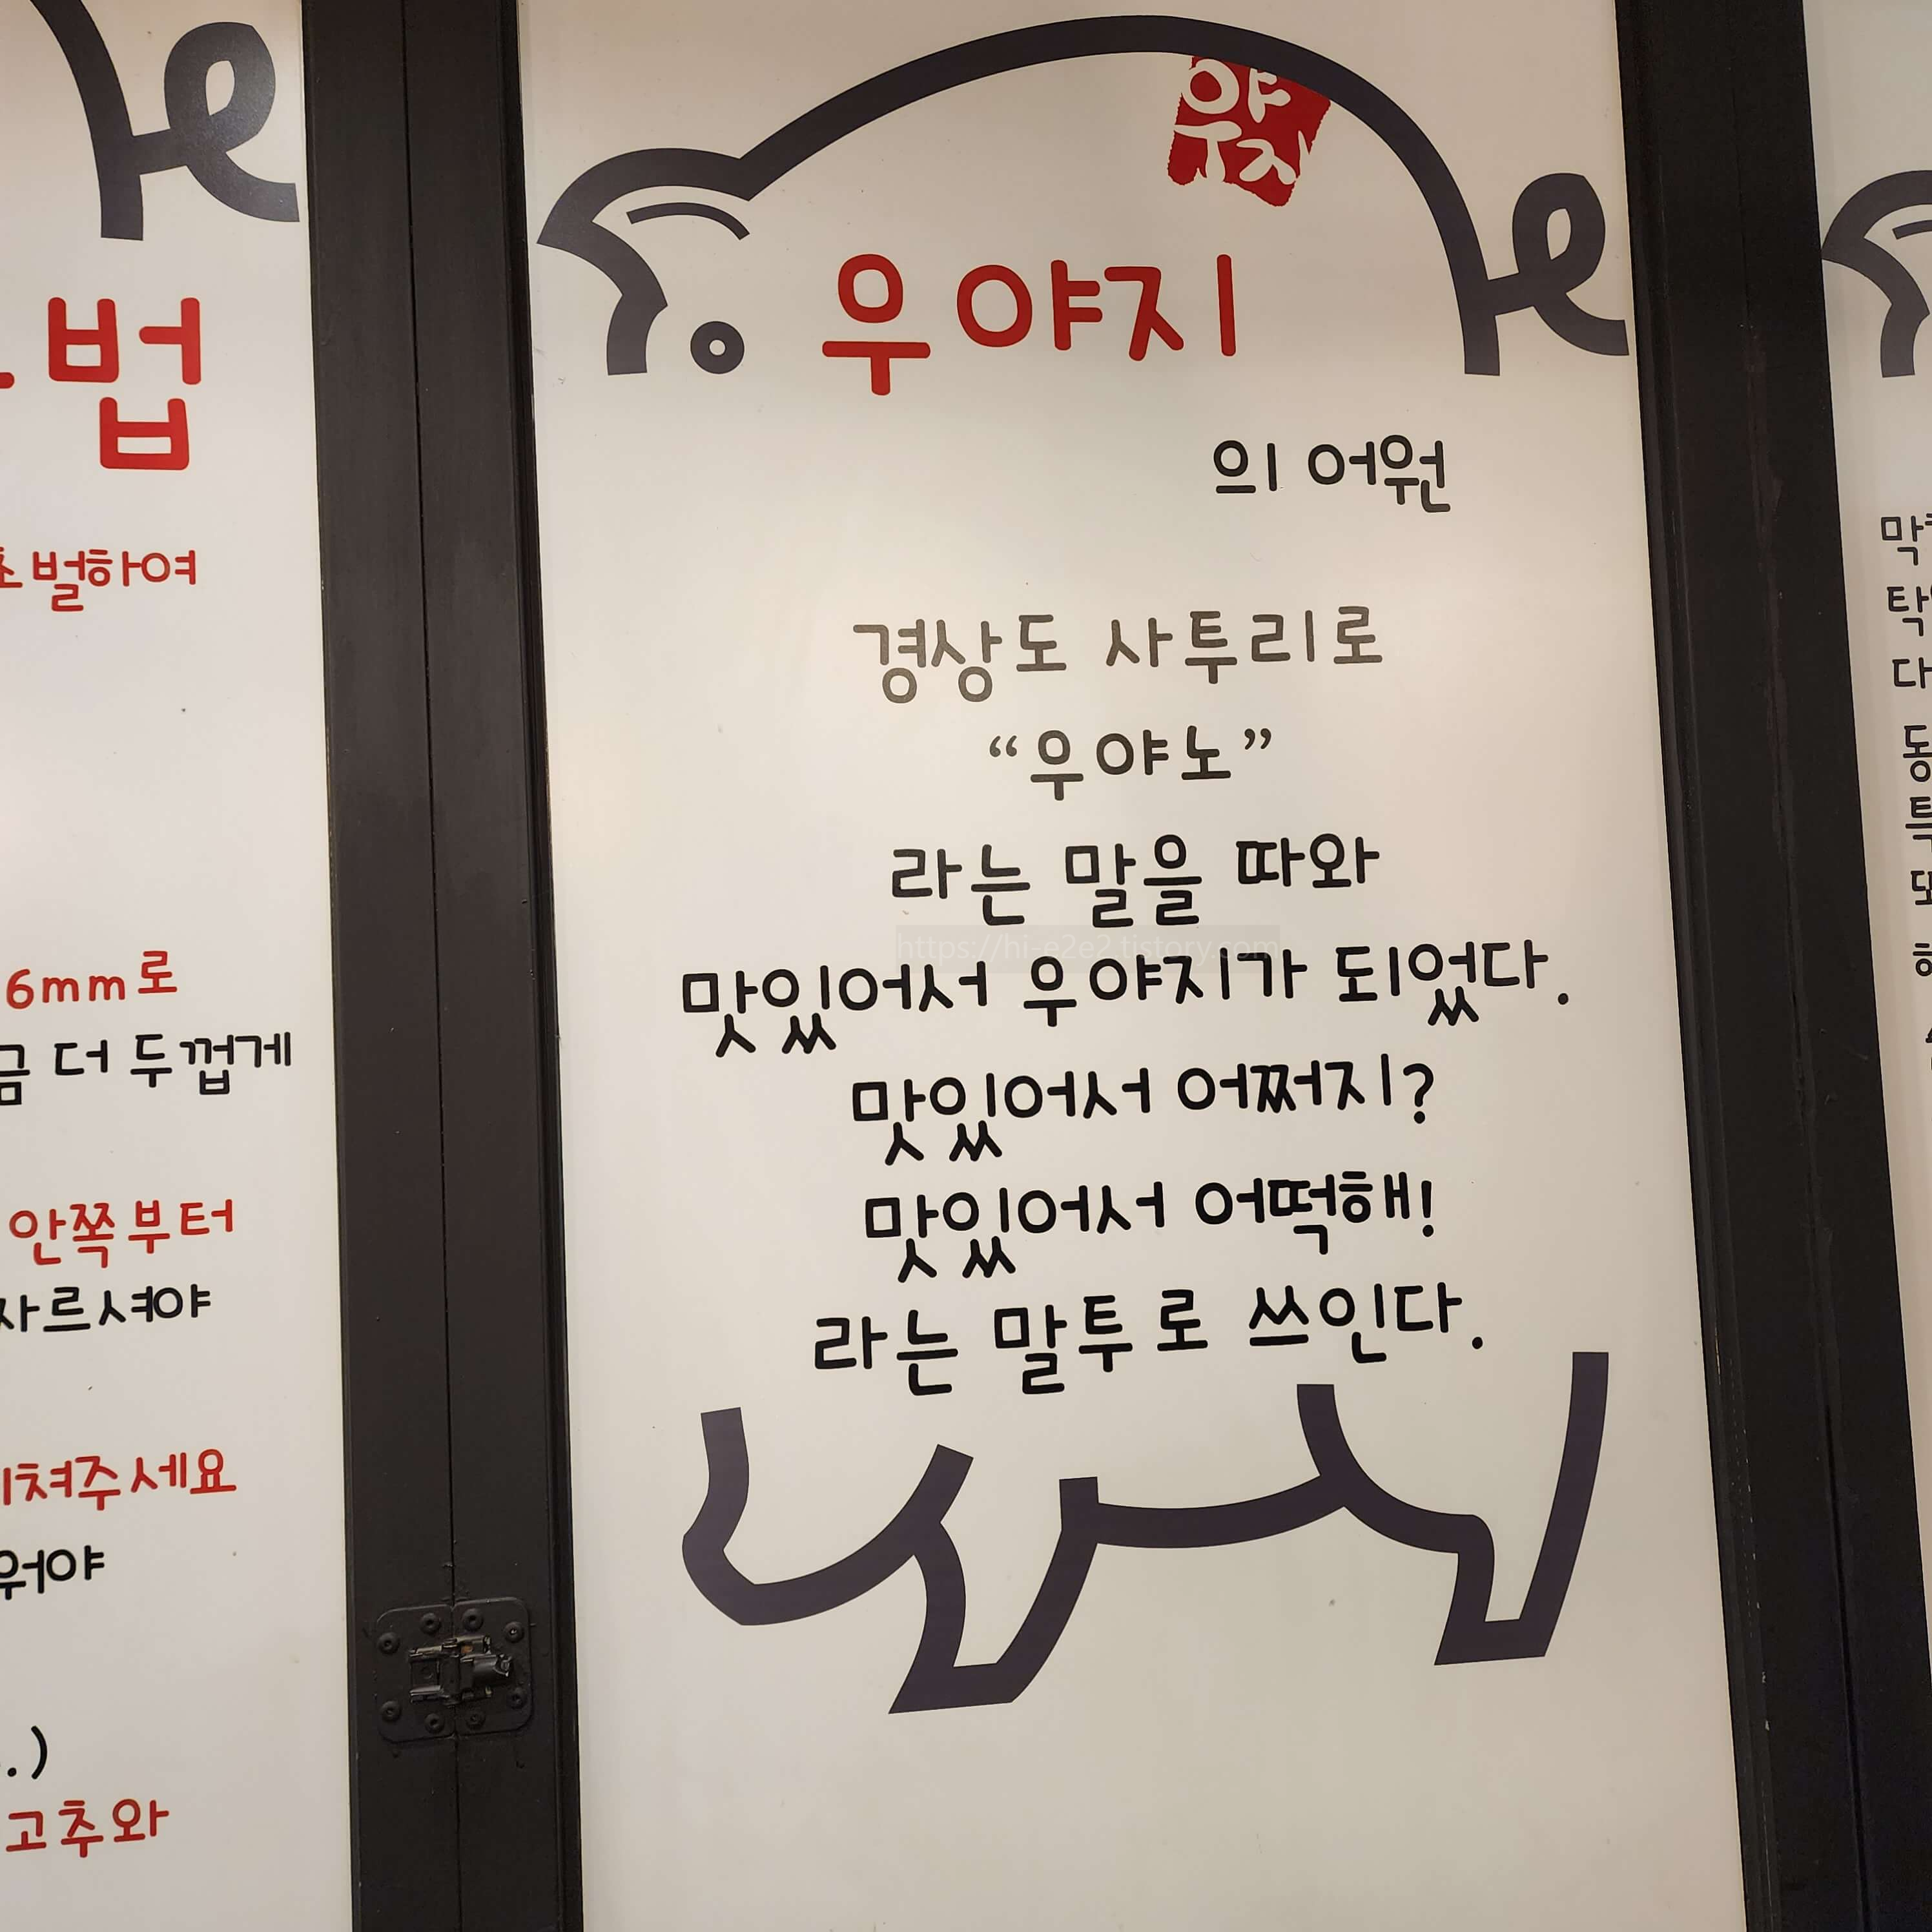 법
초벌하여
6mm로
금 더 두껍게
안쪽부터
자르셔야
쳐주세요
워야
.)
고추와
야
우지
우야지
의 어원
경상도 사투리로
“우야노”
라는 말을 따와
https://hi-e2e2.tistory.com
맛있어서 우야지가 되었다.
맛있어서 어쩌지?
맛있어서 어떡해!
라는 말투로 쓰인다.
막
다